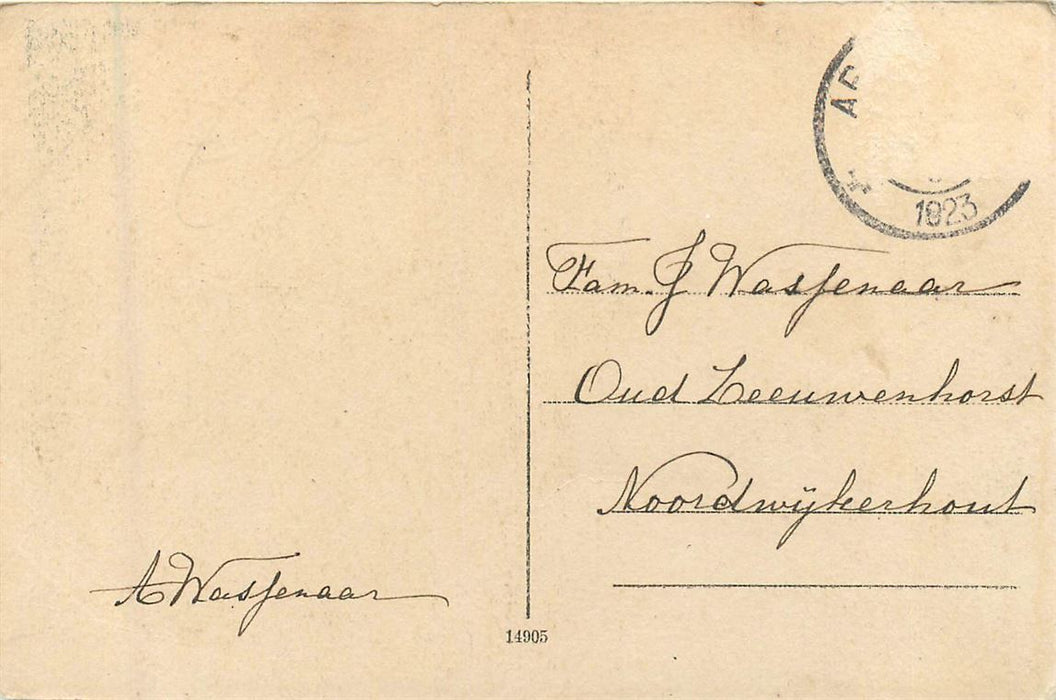 1923
Fam. J Wassenaar
Oud Leeuwenhorst
Noordwijkerhout
A Wassenaar
14905